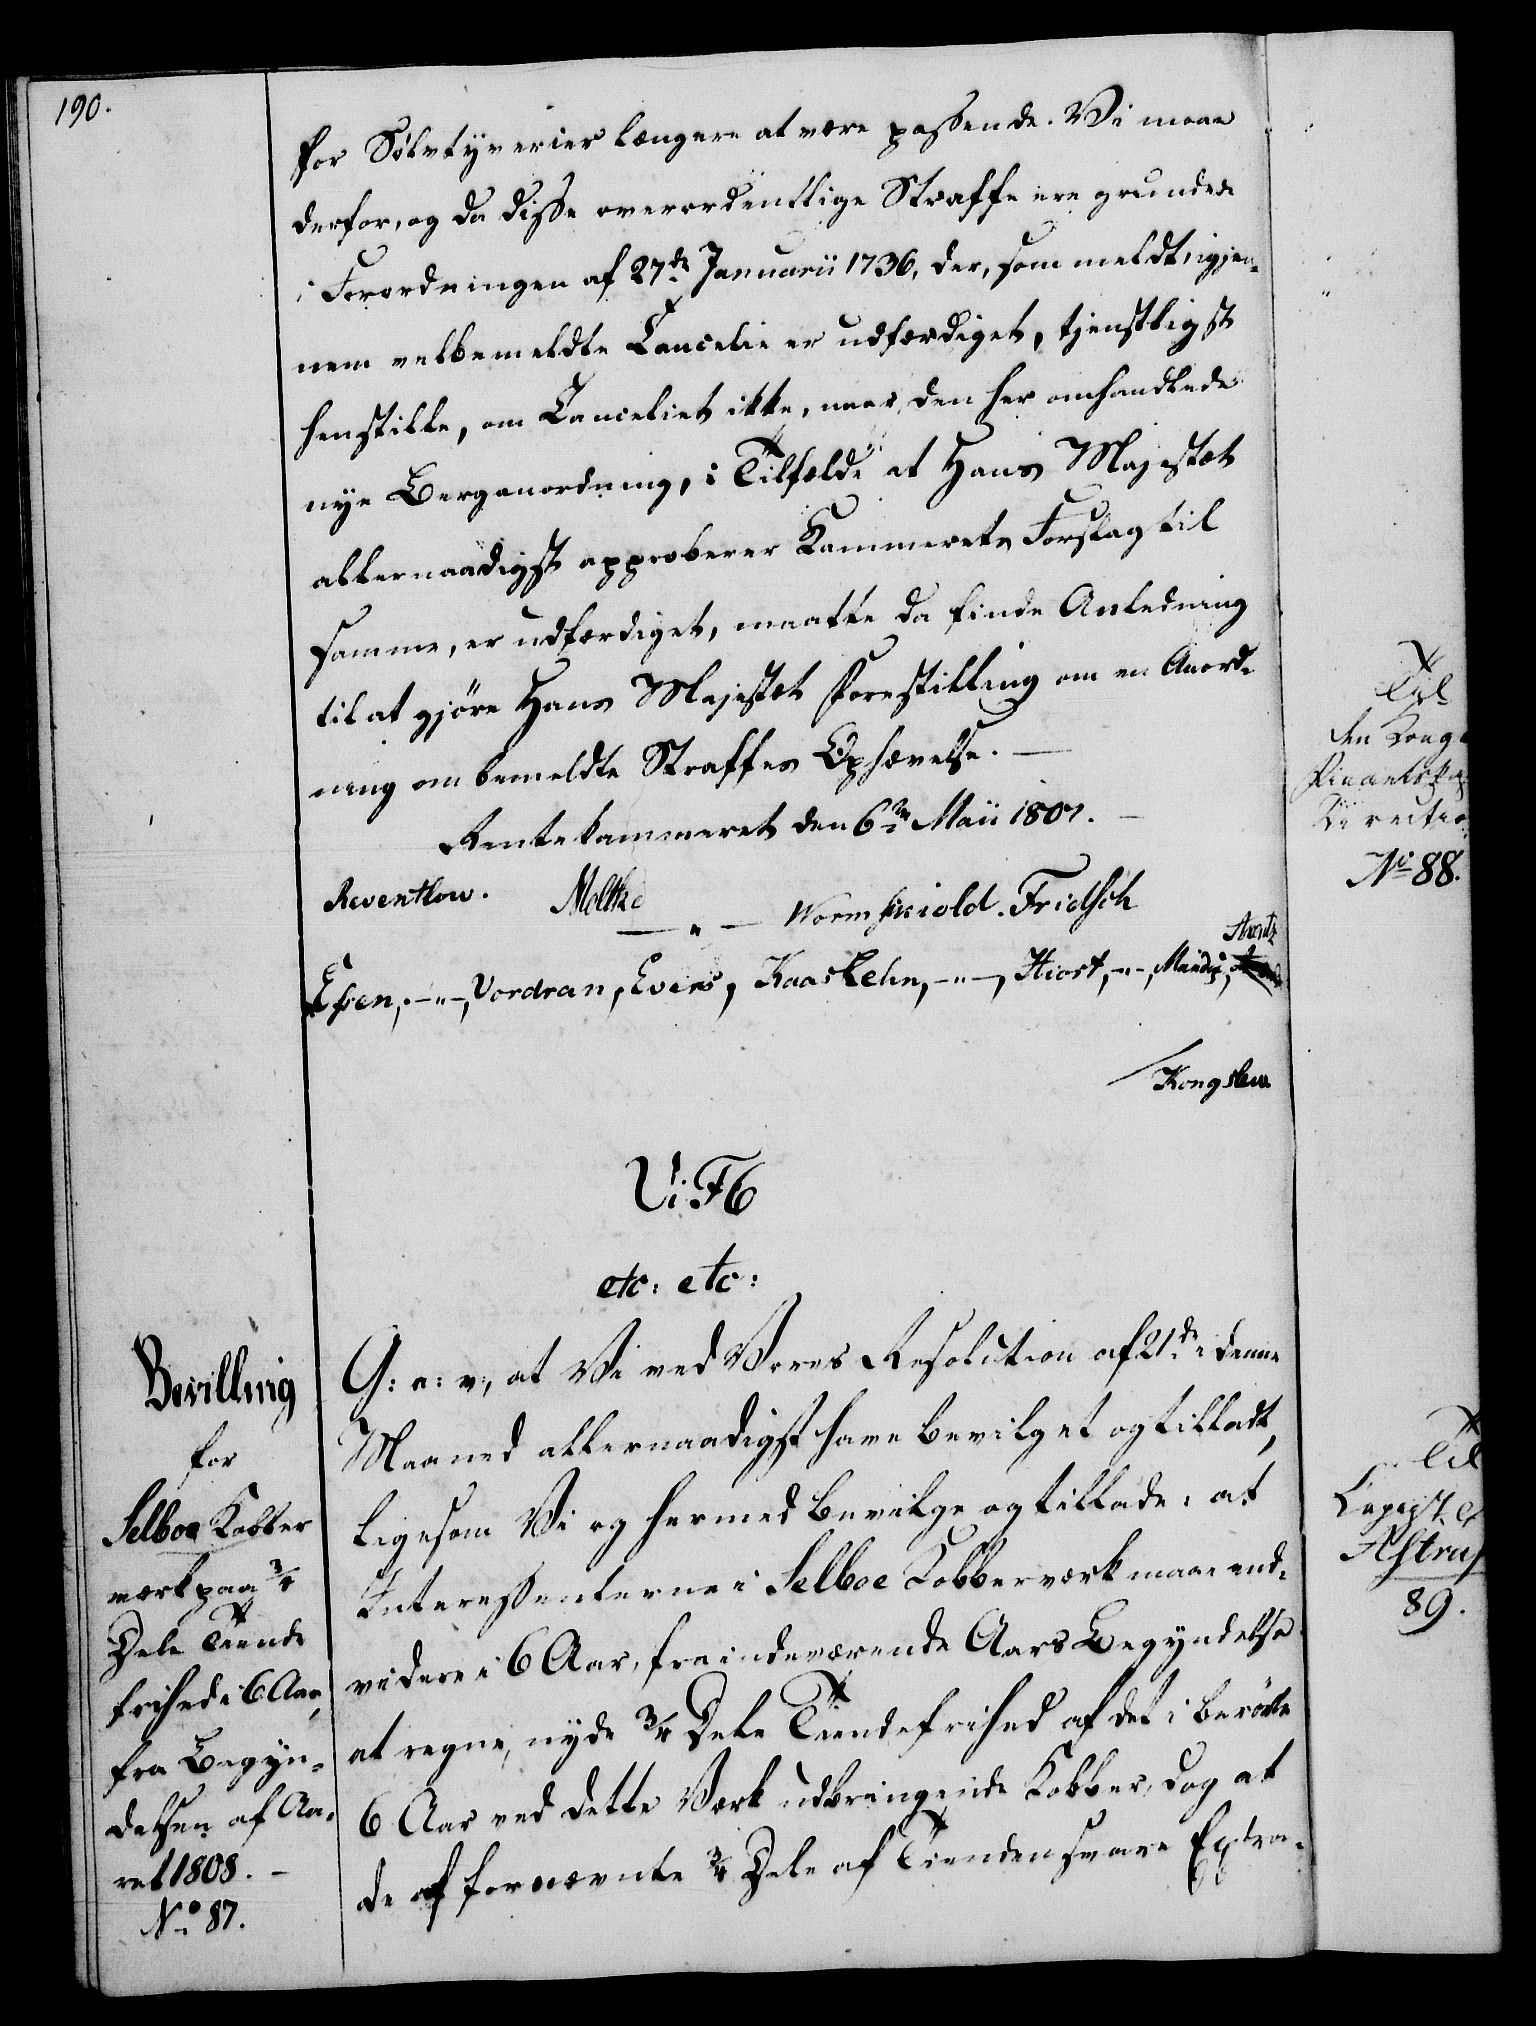 190.
for Sølvtyverier længere at være passende. Vi maae
derfor, og da disse overordentlige Straffe ere grundede
i Forordningen af 27de Januarii 1736, der, som meldt, igjen-
nem velbemeldte Cancelie er udfærdiget, tjenstligst
henstille, om Canceliet ikke, naar den her omhandlede
nye Berganordning, i Tilfælde at Hans Majestæt
allernaadigst approberer Kammerets Forslag til
samme, er udfærdiget, maatte da finde Anledning
til at gjöre Hans Majestæt Forestilling om en Anord-
ning om bemeldte Straffes Ophævelse. —
Rentekammeret den 6te Maii 1807. —
Reventlow. Moltke — „ — Wormskiold. Fridsch
Essen, -„-, Vordran, Evers, Kaasbehn, -„-, Hiort, -„-, Mandix, Arentz
/Kongslew
V: F 6
etc: etc:
Bevilling
for
Selboe Kobber
værk paa 3/4
Dele Tiende
frihed i 6 Aar,
fra Begyn-
delsen af Aa-
ret 1808. —
No 87.
G: a: v:, at Vi ved Vores Resolution af 21de i denne
Maaned allernaadigst have bevilget og tilladt,
ligesom Vi og hermed bevilge og tillade: at
Interessenterne i Selboe Kobberværk maae end-
videre i 6 Aar, fra indeværende Aars Begyndelse
at regne, nyde 3/4 Dele Tiendefrihed af det i berörte
6 Aar ved dette Værk udbringende Kobber, dog at
de af fornævnte 3/4 Dele af Tienden svare Extra-
Til
den Kong
Directio
No 88.
Til
Copist
Astrup
89.